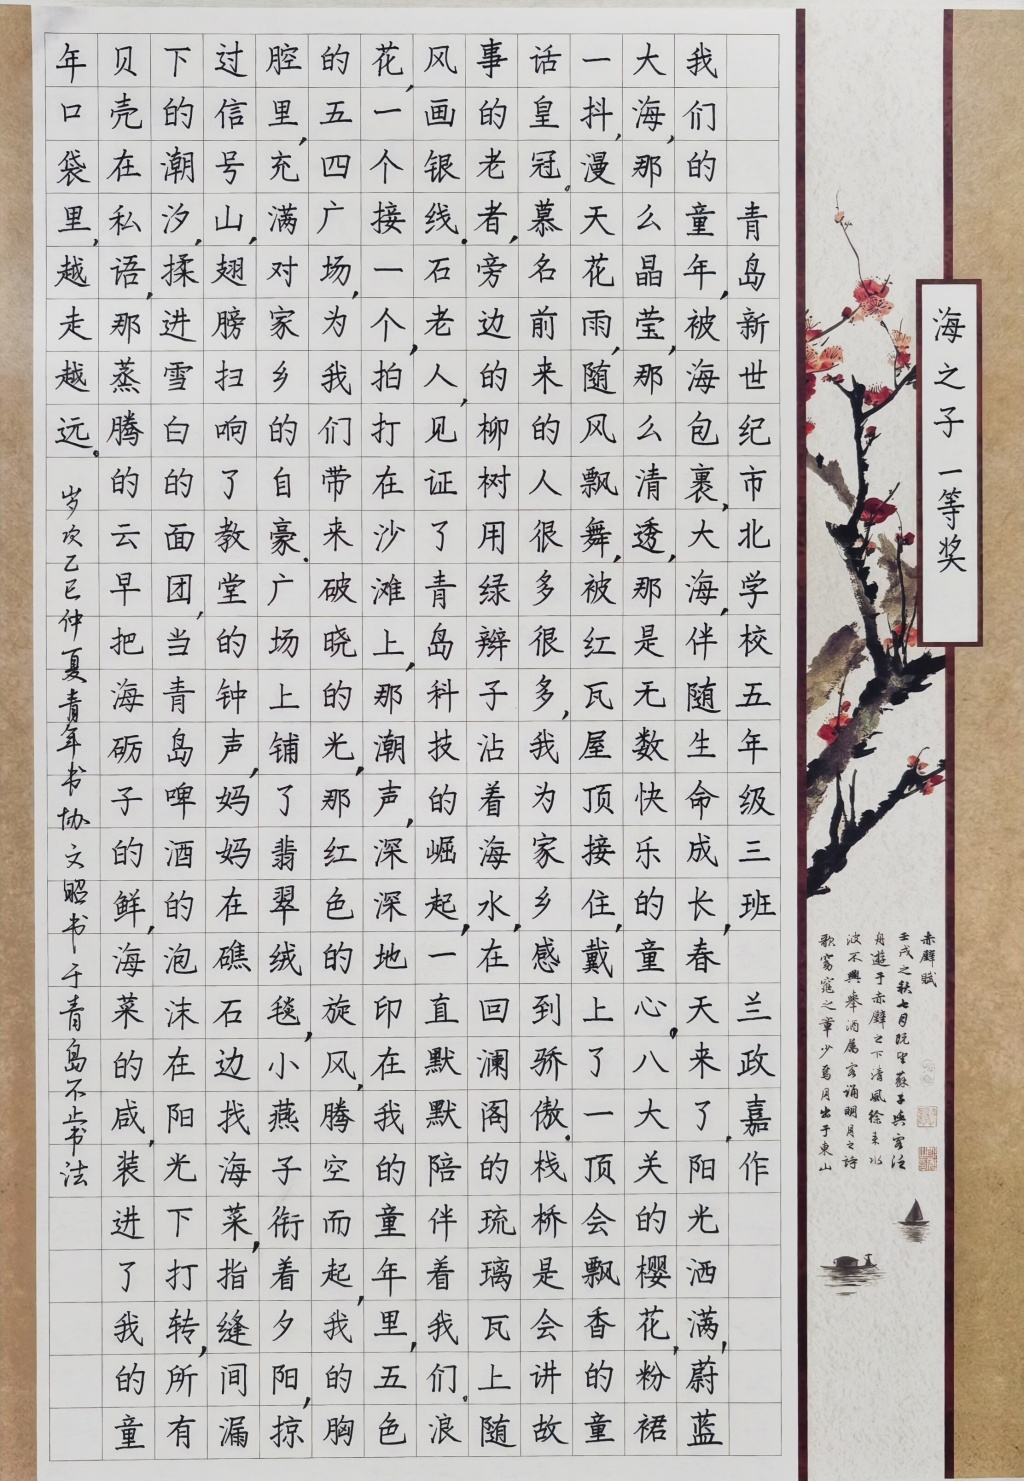 海之子 一等奖
赤壁賦
壬戌之秋七月既望蘇子與客泛
舟遊于赤壁之下清風徐来水
波不興舉酒属客誦明月之詩
歌窈窕之章少焉月出于東山
青岛新世纪市北学校五年级三班 兰政嘉作
我们的童年,被海包裹,大海,伴随生命成长,春天来了,阳光洒满,蔚蓝
大海,那么晶莹,那么清透,那是无数快乐的童心。八大关的樱花,粉裙
一抖,漫天花雨,随风飘舞,被红瓦屋顶接住,戴上了一顶会飘香的童
话皇冠。慕名前来的人很多很多,我为家乡感到骄傲。栈桥是会讲故
事的老者,旁边的柳树用绿辫子沾着海水,在回澜阁的琉璃瓦上随
风画银线。石老人,见证了青岛科技的崛起,一直默默陪伴着我们。浪
花,一个接一个,拍打在沙滩上,那潮声,深深地印在我童年里,五色
的五四广场,为我们带来破晓的光,那红色的旋风,腾空而起,我的胸
腔里,充满对家乡的自豪。广场上铺了翡翠绒毯,小燕子衔着夕阳,掠
过信号山,翅膀扫响了教堂的钟声,妈妈在礁石边找海菜,指缝间漏
下的潮汐,揉进雪白的面团,当青岛啤酒的泡沫在阳光下打转,所有
贝壳在私语,那蒸腾的云早把海砺子的鲜,海菜的咸,装进了我的童
年口袋里,越走越远。 岁次乙巳仲夏青年书协文昭书于青岛不止书法